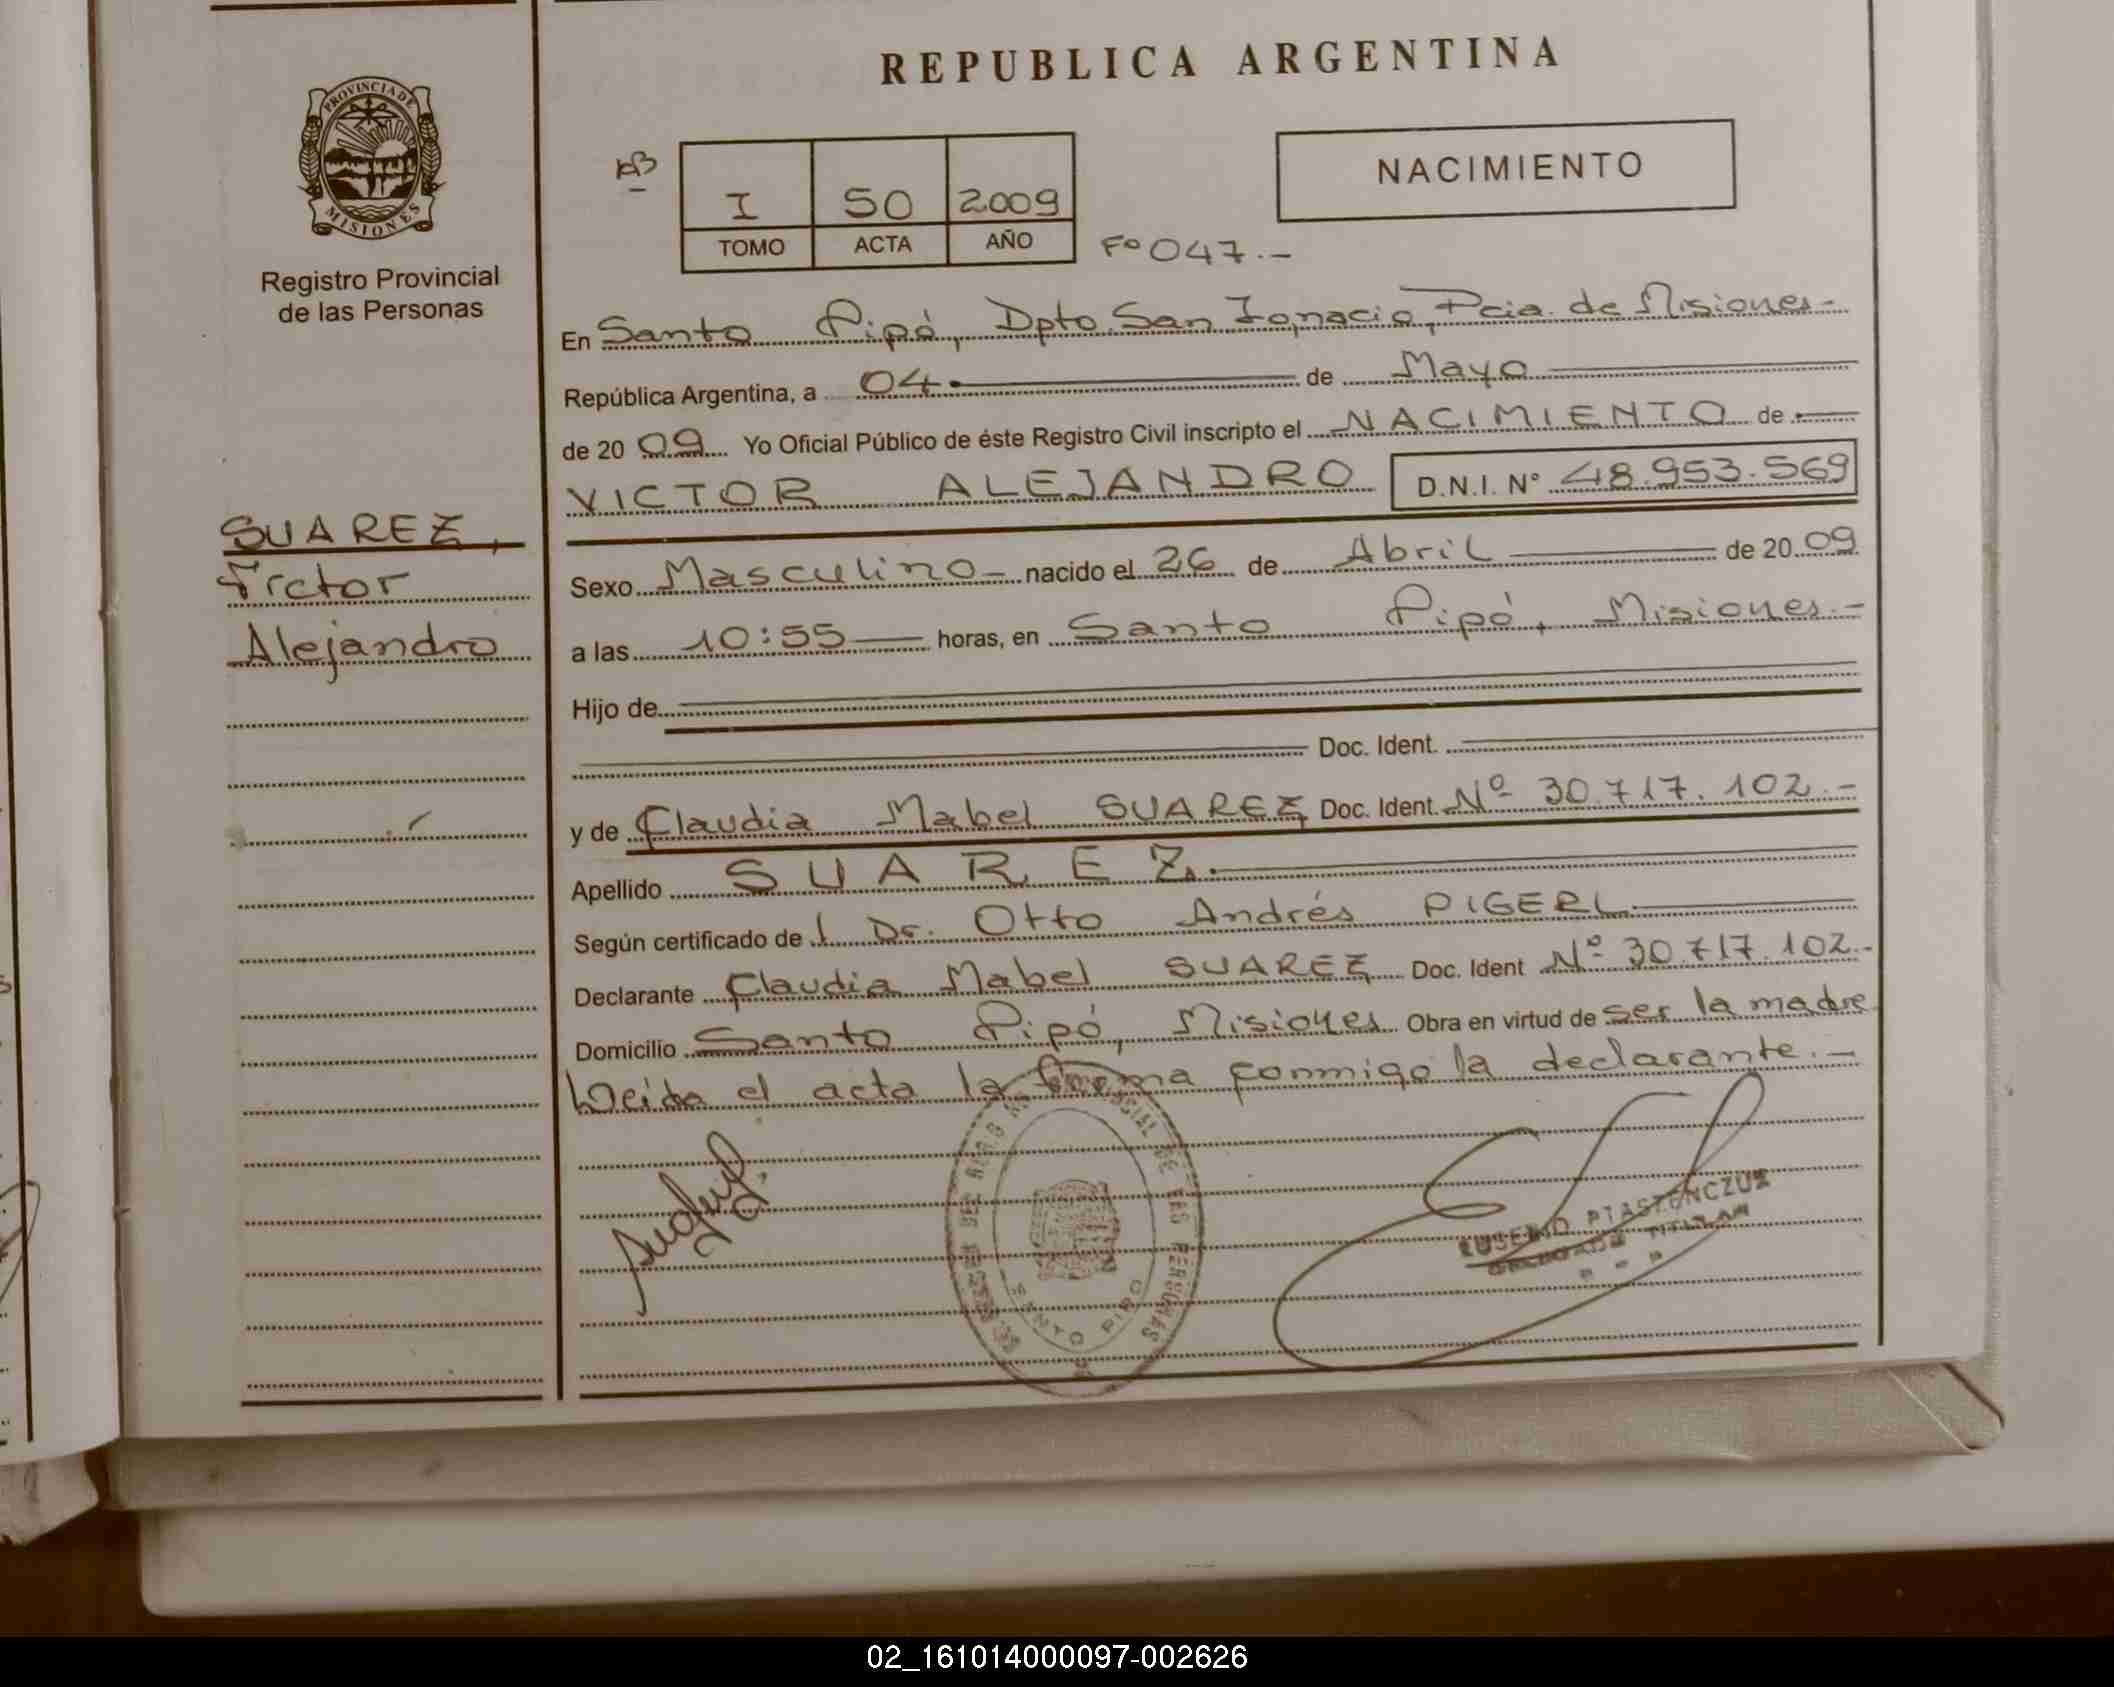 REPUBLICA ARGENTINA
PROVINCIA DE
MISIONES
Registro Provincial
de las Personas
NACIMIENTO
I 50 2009
TOMO ACTA AÑO
Fº 047.-
En Santo Pipó, Dpto. San Ignacio, Pcia. de Misiones-
República Argentina, a 04 de Mayo
de 2009 Yo Oficial Público de éste Registro Civil inscripto el NACIMIENTO de
VICTOR ALEJANDRO D.N.I. Nº 48.953.569
SUAREZ,
Victor
Alejandro
Sexo Masculino- nacido el 26 de Abril de 2009
a las 10:55 horas, en Santo Pipó, Misiones.-
Hijo de
Doc. Ident.
y de Claudia Mabel SUAREZ Doc. Ident. Nº 30.717.102.-
Apellido SUAREZ.
Según certificado de l Dr. Otto Andrés PIGERL
Declarante Claudia Mabel SUAREZ Doc. Ident Nº 30.717.102.-
Domicilio Santo Pipó, Misiones Obra en virtud de ser la madre
Leida el acta la firma conmigo la declarante.-
DE LAS PERSONAS
SANTO PIPO
TITULAR
02_161014000097-002626